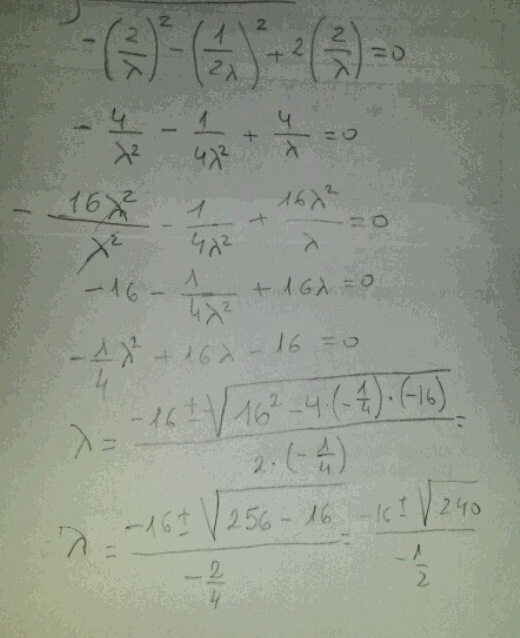 -(2/λ)² - (1/2λ)² + 2(2/λ) = 0
- 4/λ² - 1/4λ² + 4/λ = 0
- 16λ²/λ² - 1/4λ² + 16λ²/λ = 0
-16 - 1/4λ² + 16λ = 0
- 1/4 λ² + 16λ - 16 = 0
λ = (-16 ± √(16² - 4·(-1/4)·(-16)))/(2·(-1/4)) =
λ = (-16 ± √(256 - 16))/(-2/4) = (-16 ± √240)/(-1/2)